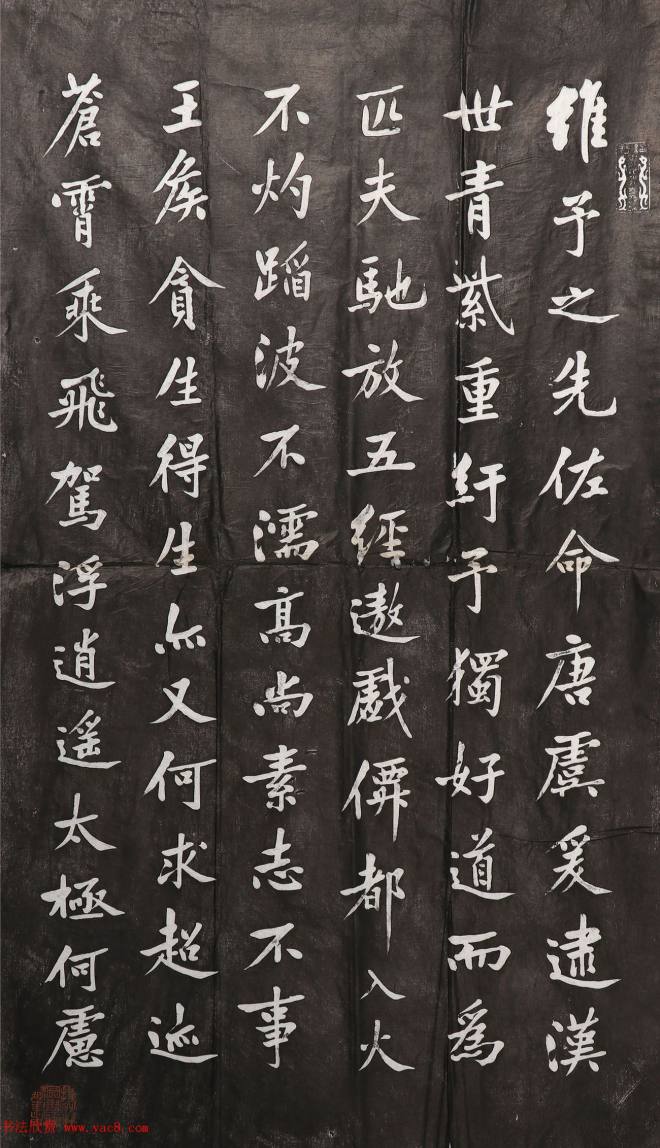 維予之先佐命唐虞爰逮漢
世青紫重紆予獨好道而為
匹夫馳放五經遨戲僊都入火
不灼蹈波不濡高尚素志不事
王侯貪生得生亦又何求超迹
蒼霄乘飛駕浮逍遥太極何慮
书法欣赏 www.yac8.com